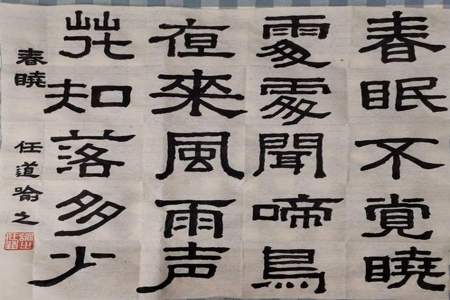 春眠不覚曉
處處聞啼鳥
夜來風雨声
花知落多少
春曉
任道喻之